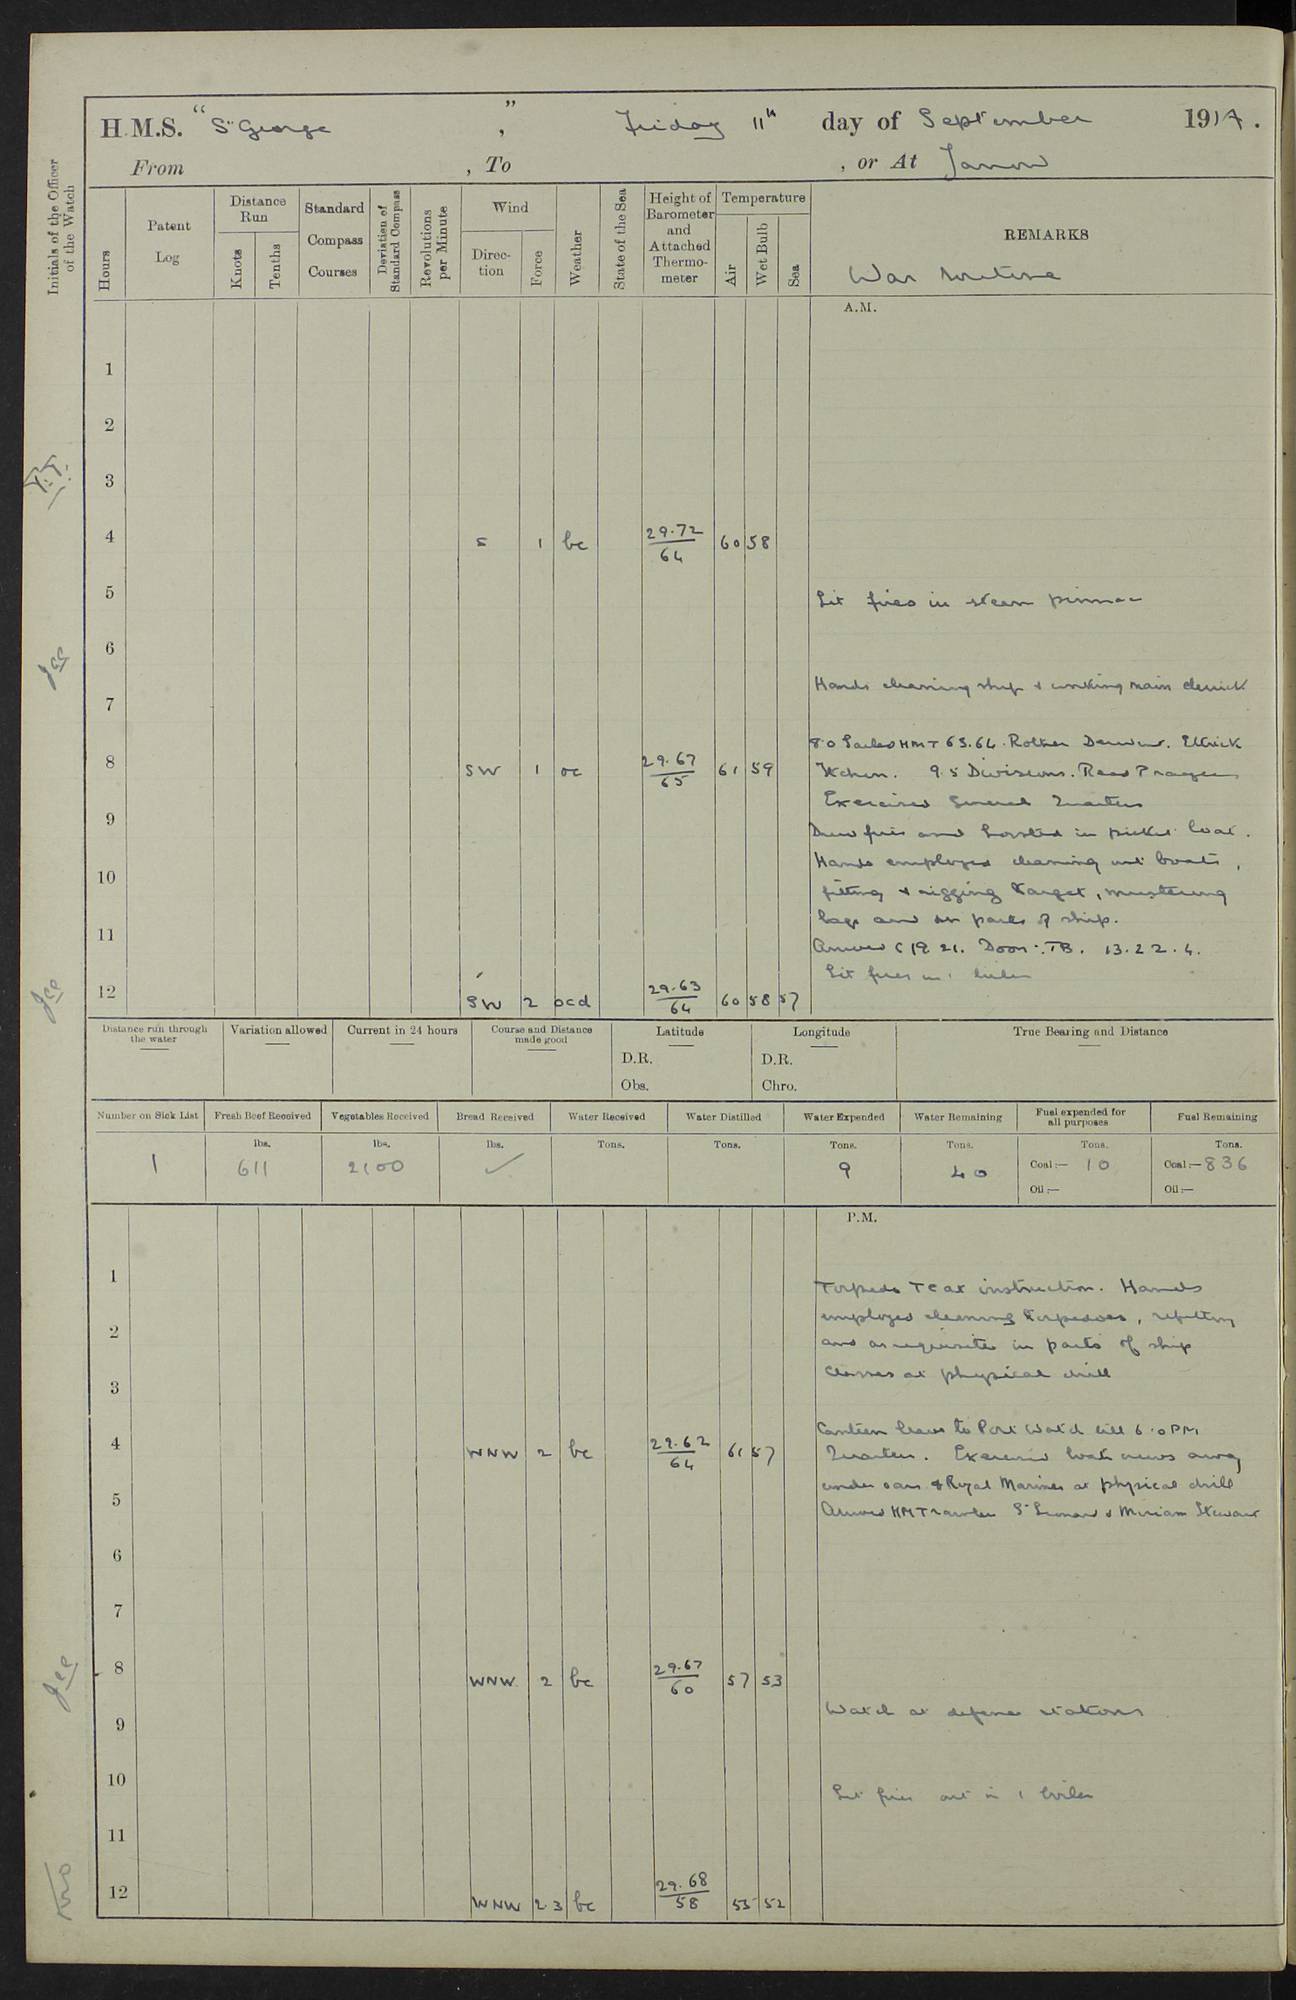 H.M.S. "St George", Friday 11th day of September 1914.
From , To , or At Jarrow
Initials of the Officer of the Watch
Hours
Patent Log
Distance Run
Knots
Tenths
Standard Compass Courses
Deviation of Standard Compass
Revolutions per Minute
Wind
Direction
Force
Weather
State of the Sea
Height of Barometer and Attached Thermometer
Temperature
Air
Wet Bulb
Sea
REMARKS
War Routine
A.M.
1
2
3
4 S 1 bc 29.72/64 60 58
5 Lit fires in steam pinnace
6
Hands cleaning ship & working main derrick
7
8.0 Sailed HMT 63.64. Rother Derwent. Ettrick
8 SW 1 oc 29.67/65 61 59 Itchen. 9.5 Divisions. Read Prayers
Exercised General Quarters
9 Drew fires and hoisted in picket boat.
Hands employed cleaning out boats,
10
fitting & rigging target, mustering
bags and in parts of ship.
11 Arrived C 19 21. Doon. TB. 13.22.4.
Lit fires in 1 boiler
12 SW 2 ocd 29.63/64 60 58 57
Distance run through the water
Variation allowed
Current in 24 hours
Course and Distance made good
Latitude
D.R.
Obs.
Longitude
D.R.
Chro.
True Bearing and Distance
Number on Sick List
Fresh Beef Received
Vegetables Received
Bread Received
Water Received
Water Distilled
Water Expended
Water Remaining
Fuel expended for all purposes
Fuel Remaining
lbs. lbs. lbs. Tons. Tons. Tons. Tons. Tons. Tons.
1 611 2100 ✓ 9 40 Coal:— 10 Coal:— 836
Oil:— Oil:—
P.M.
1 Torpedo TC at instruction. Hands
employed cleaning torpedoes, refitting
2 and as requisite in parts of ship
Classes at physical drill
3
Canteen leave to Port Watch till 6.0 PM
4 WNW 2 bc 29.62/64 61 57 Quarters. Exercised boats crews away
under oars & Royal Marines at physical drill
5 Arrived HM Trawlers St Leonard & Miriam Stewart
6
7
8 WNW 2 bc 29.67/60 57 53
9 Watch at defence stations
10 Let fires out in 1 boiler
11
12 WNW 2.3 bc 29.68/58 55 52